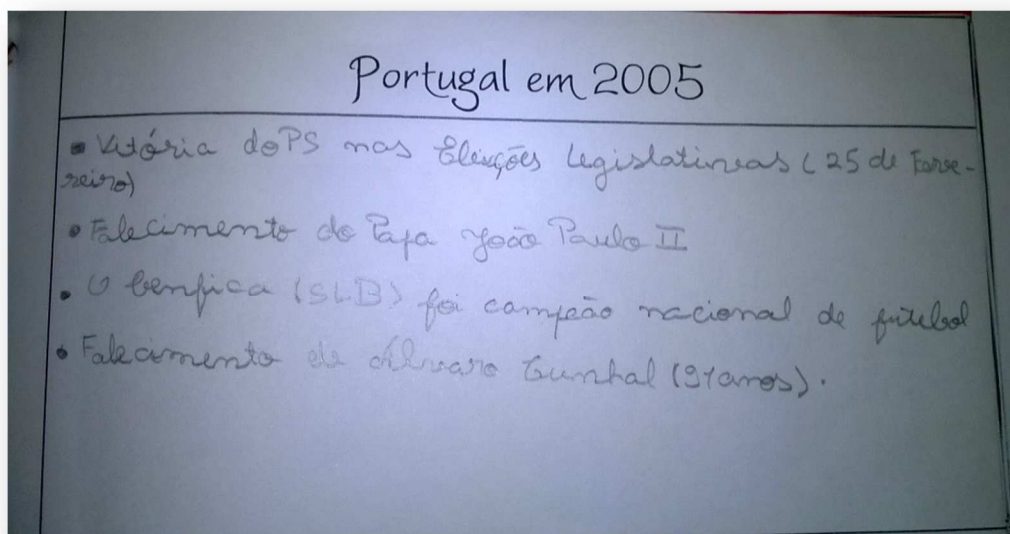 Portugal em 2005
• Vitória do PS nas Eleições Legislativas (25 de Feve-
reiro)
• Falecimento do Papa João Paulo II
• O benfica (SLB) foi campeão nacional de futebol
• Falecimento de Álvaro Cunhal (91 anos).